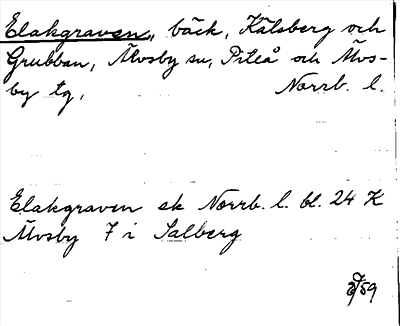 Elakgraven, bäck, Kälsberg och
Grubban, Älvsby sn, Piteå och Älvs-
by tg, Norrb. l.
Elakgraven ek Norrb. l. bl. 24 K
Älvsby 7 i Salberg
59